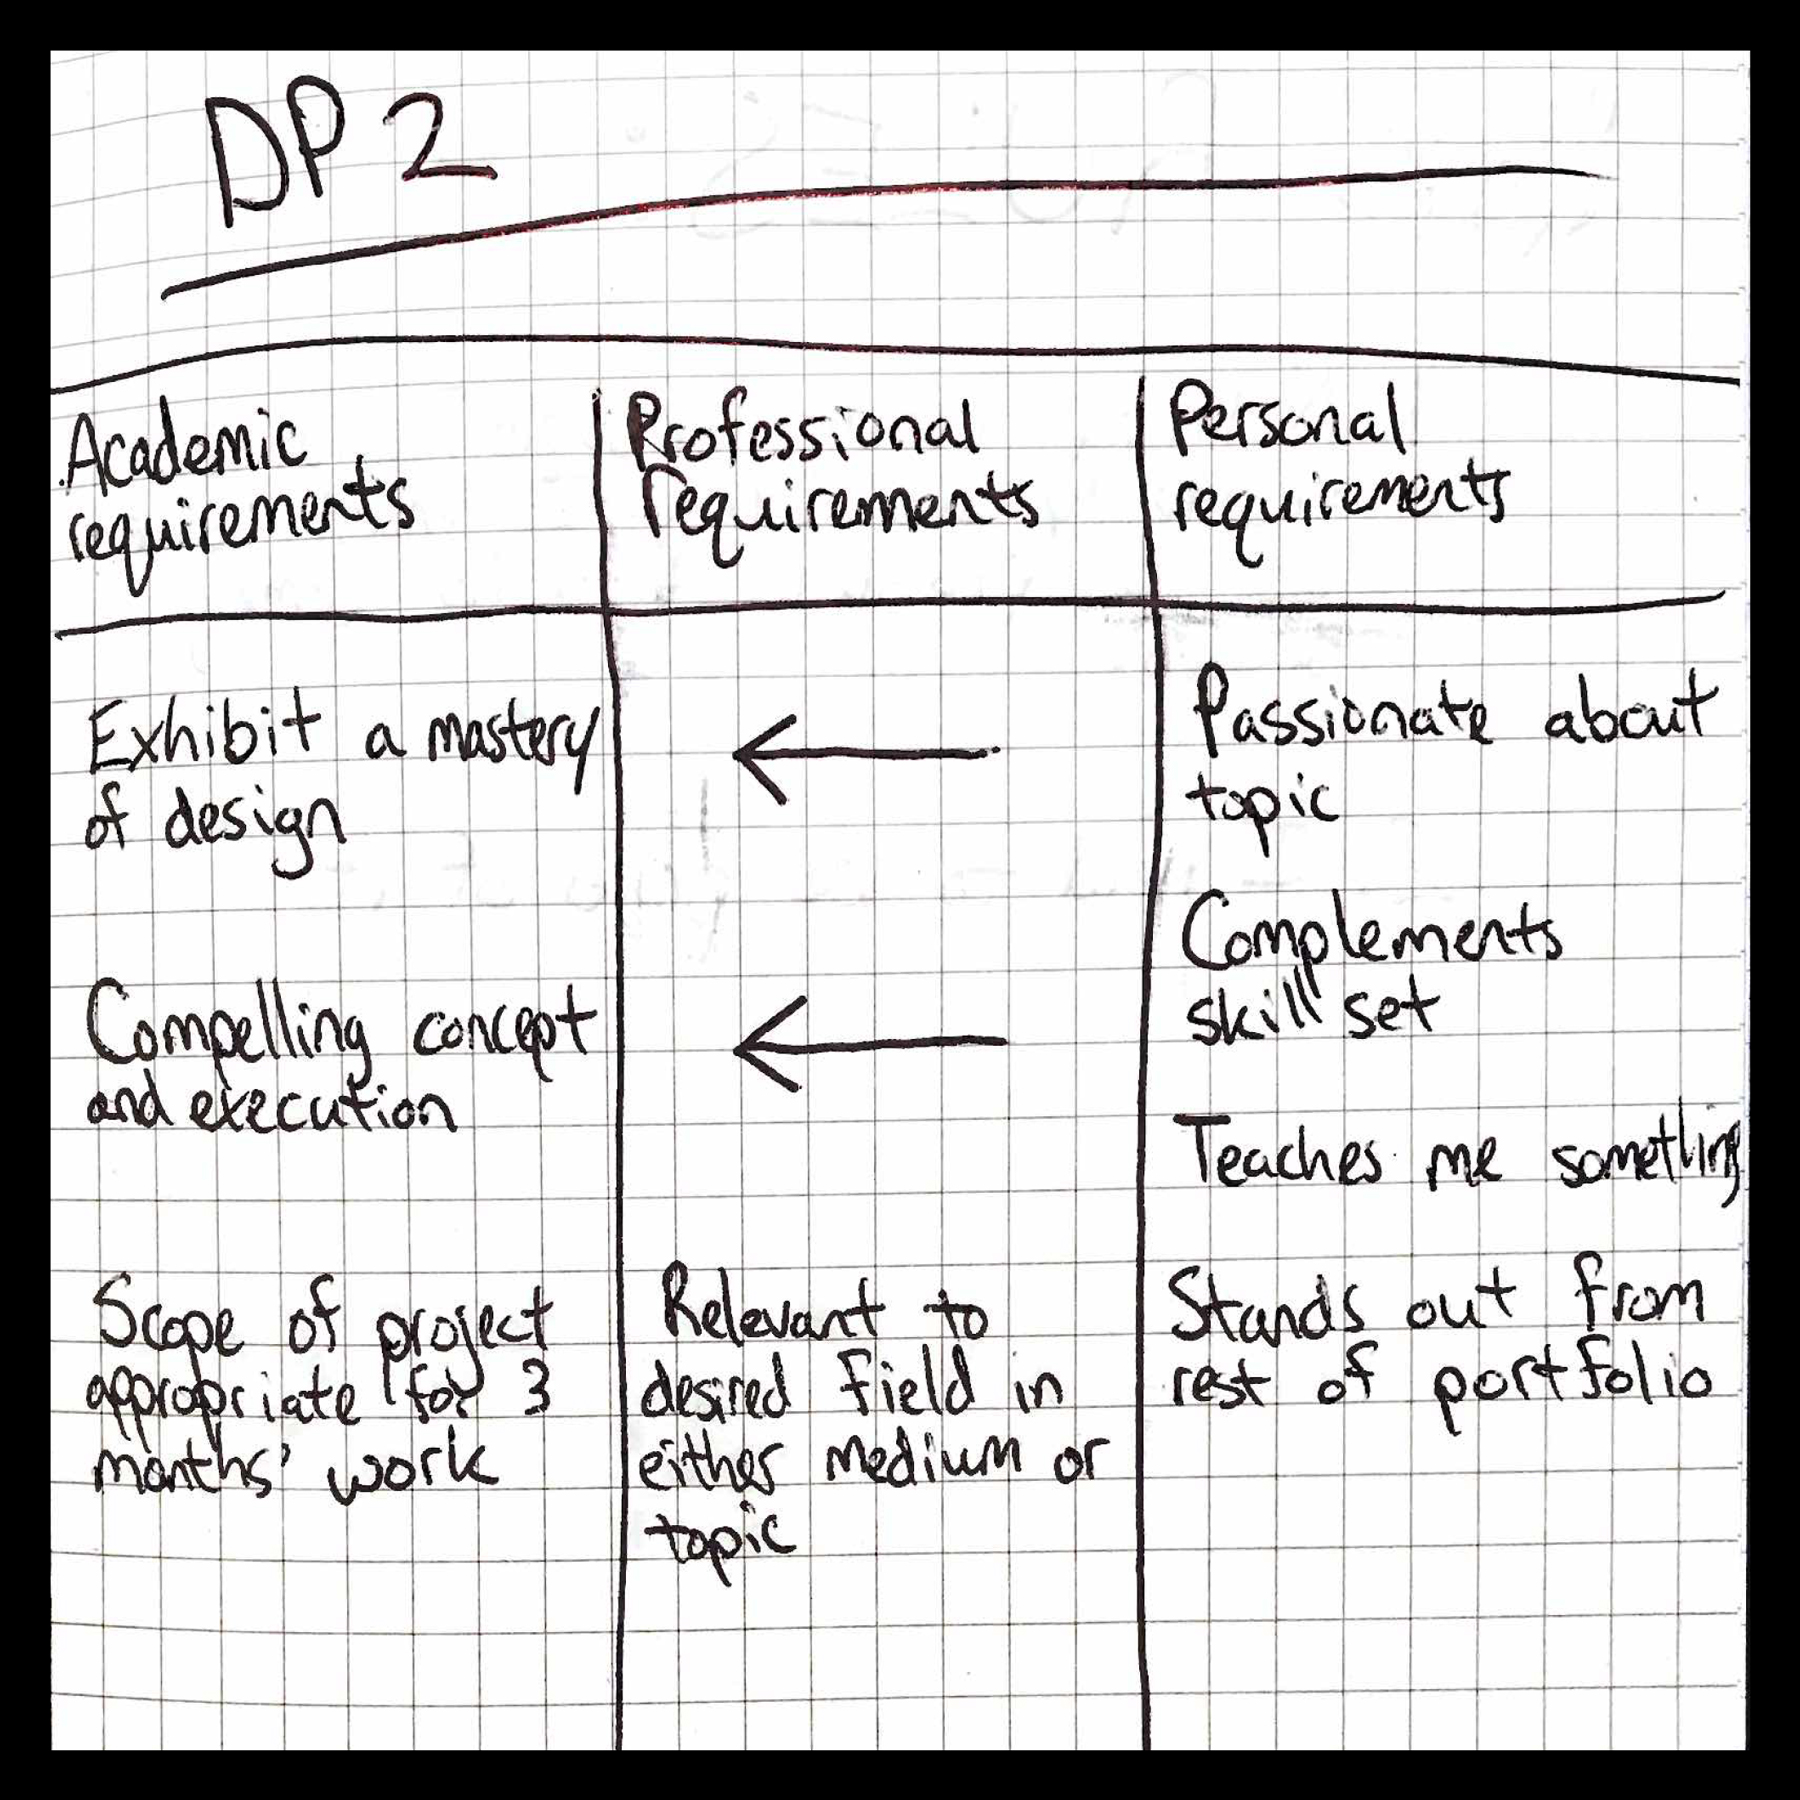 DP 2
Academic
requirements
Professional
requirements
Personal
requirements
Exhibit a mastery
of design
←
Passionate about
topic
Compelling concept
and execution
←
Complements
skill set
Teaches me something
Scope of project
appropriate for 3
months' work
Relevant to
desired field in
either medium or
topic
Stands out from
rest of portfolio